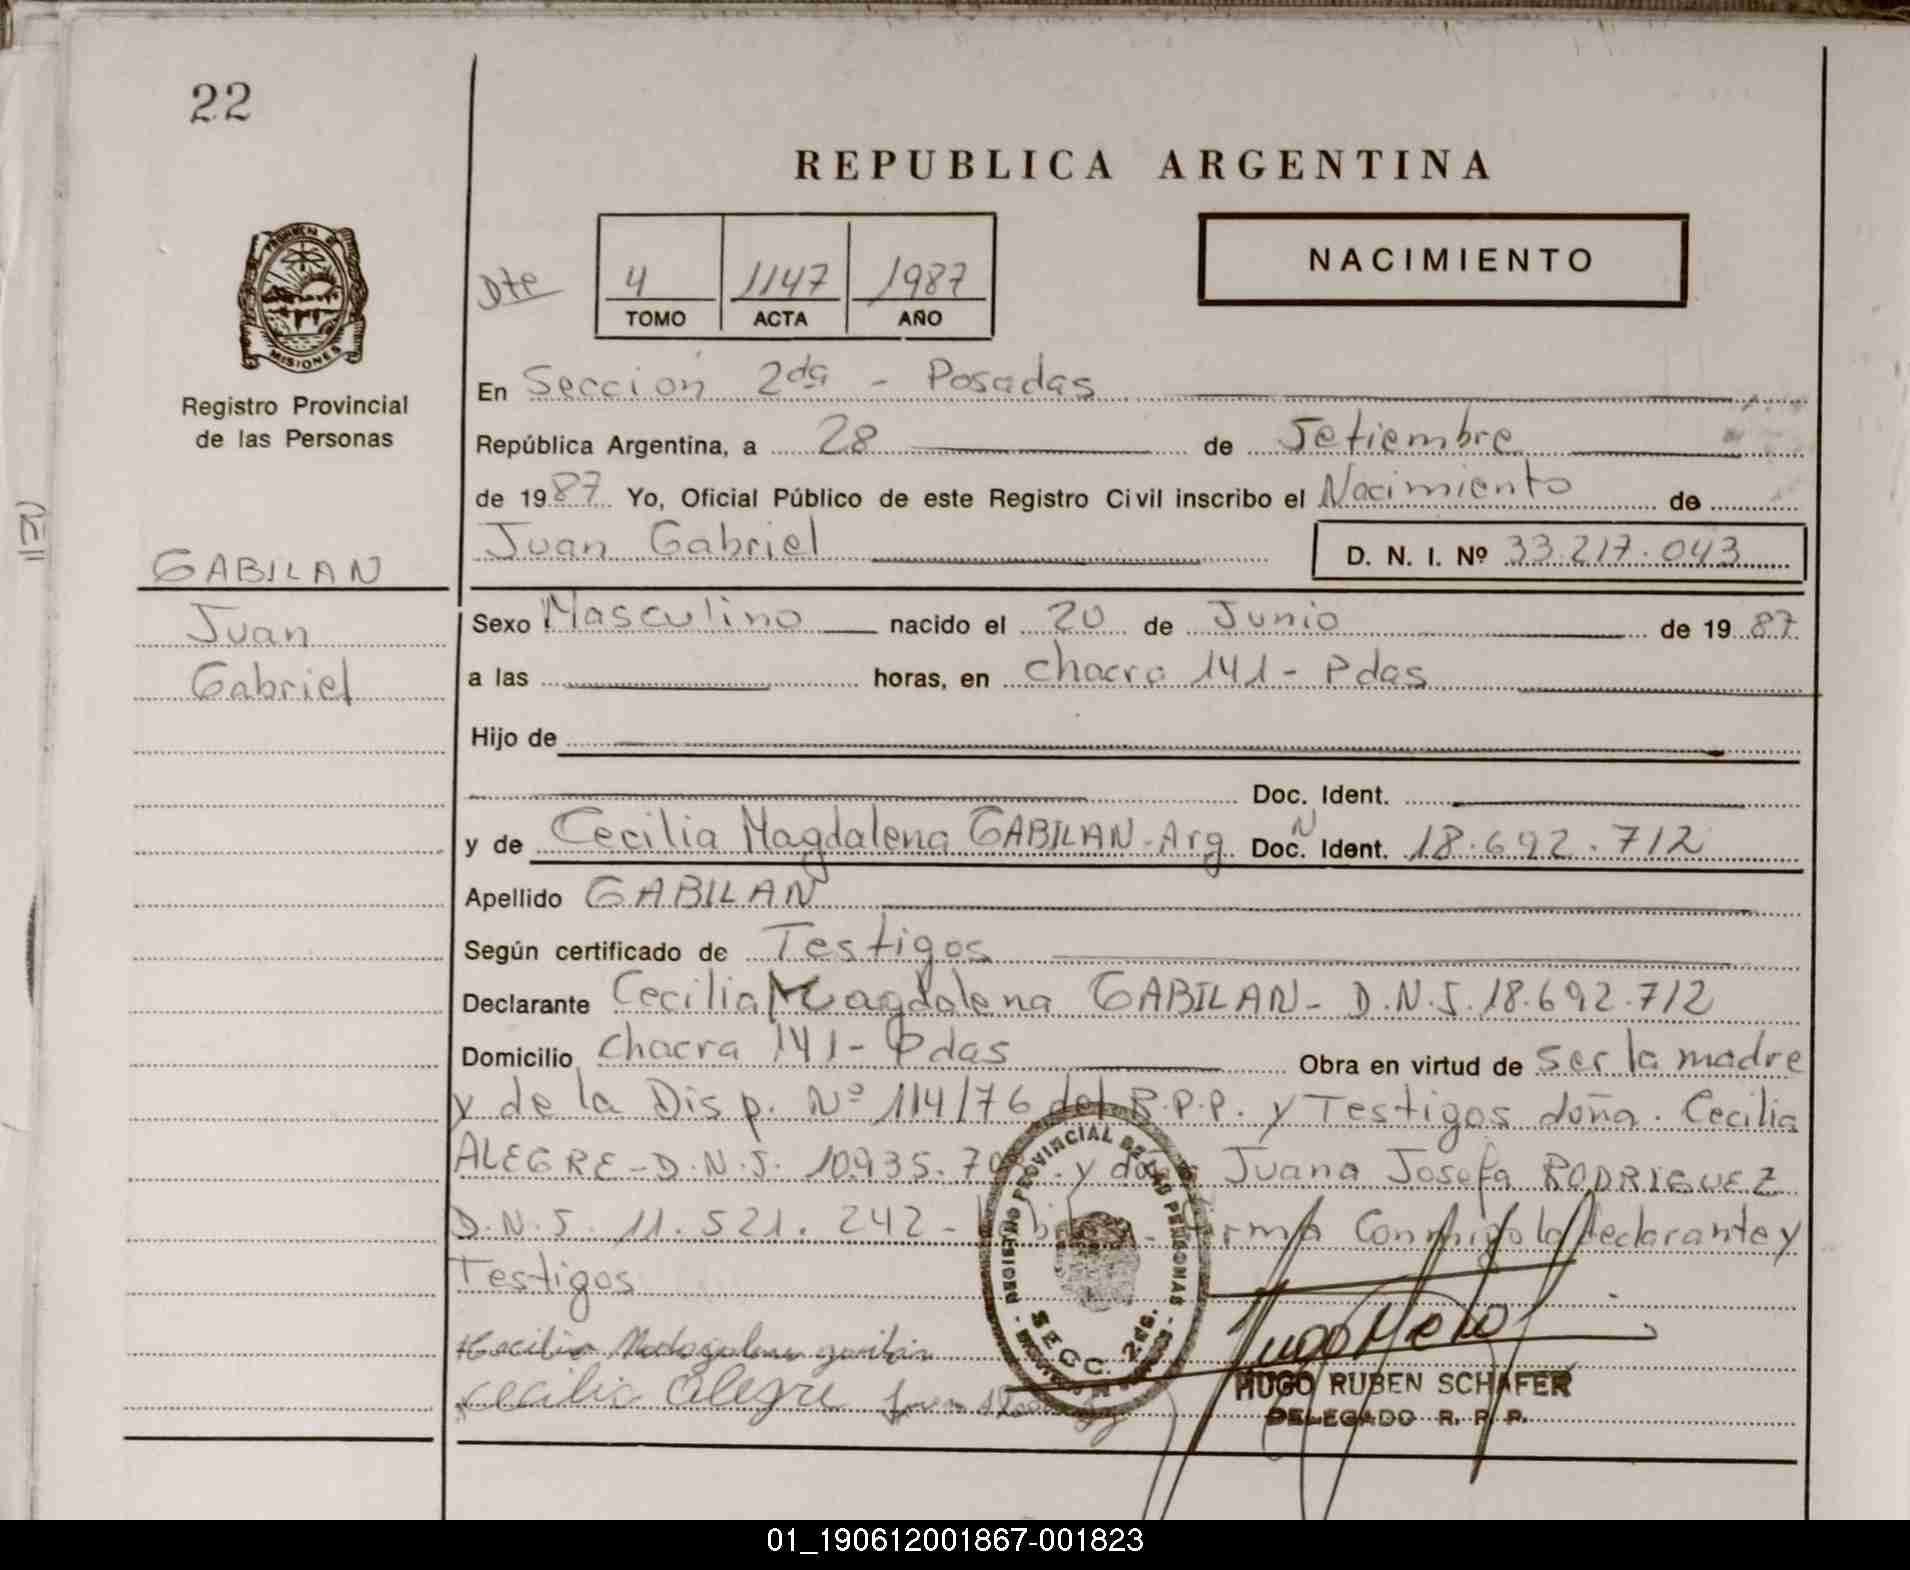 22
REPUBLICA ARGENTINA
NACIMIENTO
Dte
4 1147 1987
TOMO ACTA AÑO
PROVINCIA DE
MISIONES
Registro Provincial
de las Personas
En Sección 2da - Posadas
República Argentina, a 28 de Setiembre
de 1987 Yo, Oficial Público de este Registro Civil inscribo el Nacimiento de
Juan Gabriel D. N. I. Nº 33.217.043
GABILAN
Juan
Gabriel
Sexo Masculino nacido el 20 de Junio de 1987
a las horas, en chacra 141 - Pdas
Hijo de
Doc. Ident.
y de Cecilia Magdalena GABILAN - Arg. Doc. N Ident. 18.692.712
Apellido GABILAN
Según certificado de Testigos
Declarante Cecilia Magdalena GABILAN - D.N.I. 18.692.712
Domicilio chacra 141 - Pdas Obra en virtud de ser la madre
y de la Disp. Nº 114/76 del R.P.P. y Testigos doña. Cecilia
ALEGRE - D.N.I. 10.935.7 y Juana Josefa RODRIGUEZ
D.N.I. 11.521.242 - firma Conmigo la declarante y
Testigos
REGISTRO PROVINCIAL DE LAS PERSONAS
SECC. 2da.
Cecilia
Cecilia Alegre
HUGO RUBEN SCHAFER
DELEGADO R. P. P.
01_190612001867-001823